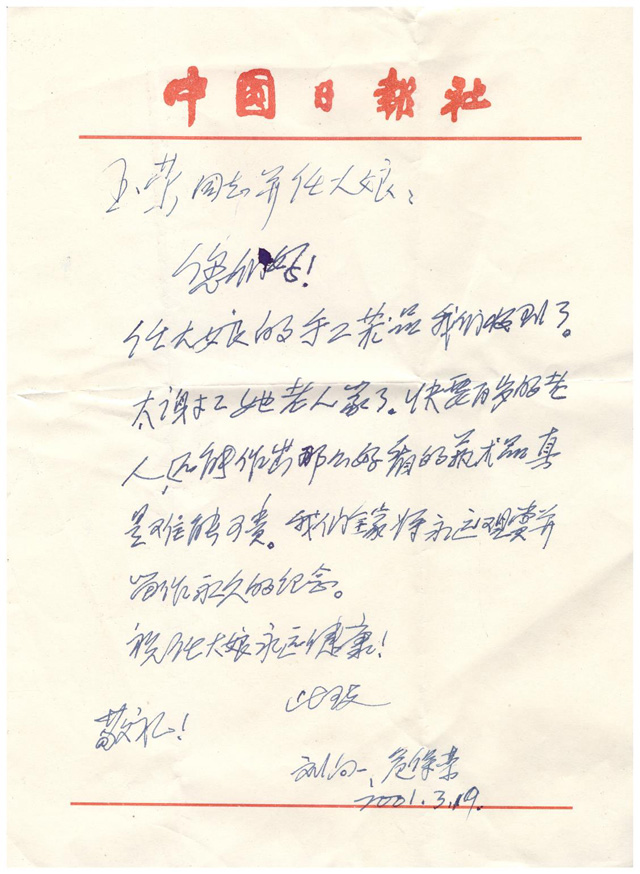 中国日报社
玉荣同志并任大娘：
您们好！
任大娘的手工艺品我们收到了。
太谢谢她老人家了。快要百岁的老
人还能作出那么好看的艺术品真
是难能可贵。我们全家将永远观赏并
留作永久的纪念。
祝任大娘永远健康！
此致
敬礼！
刘向一、
2001.3.19.